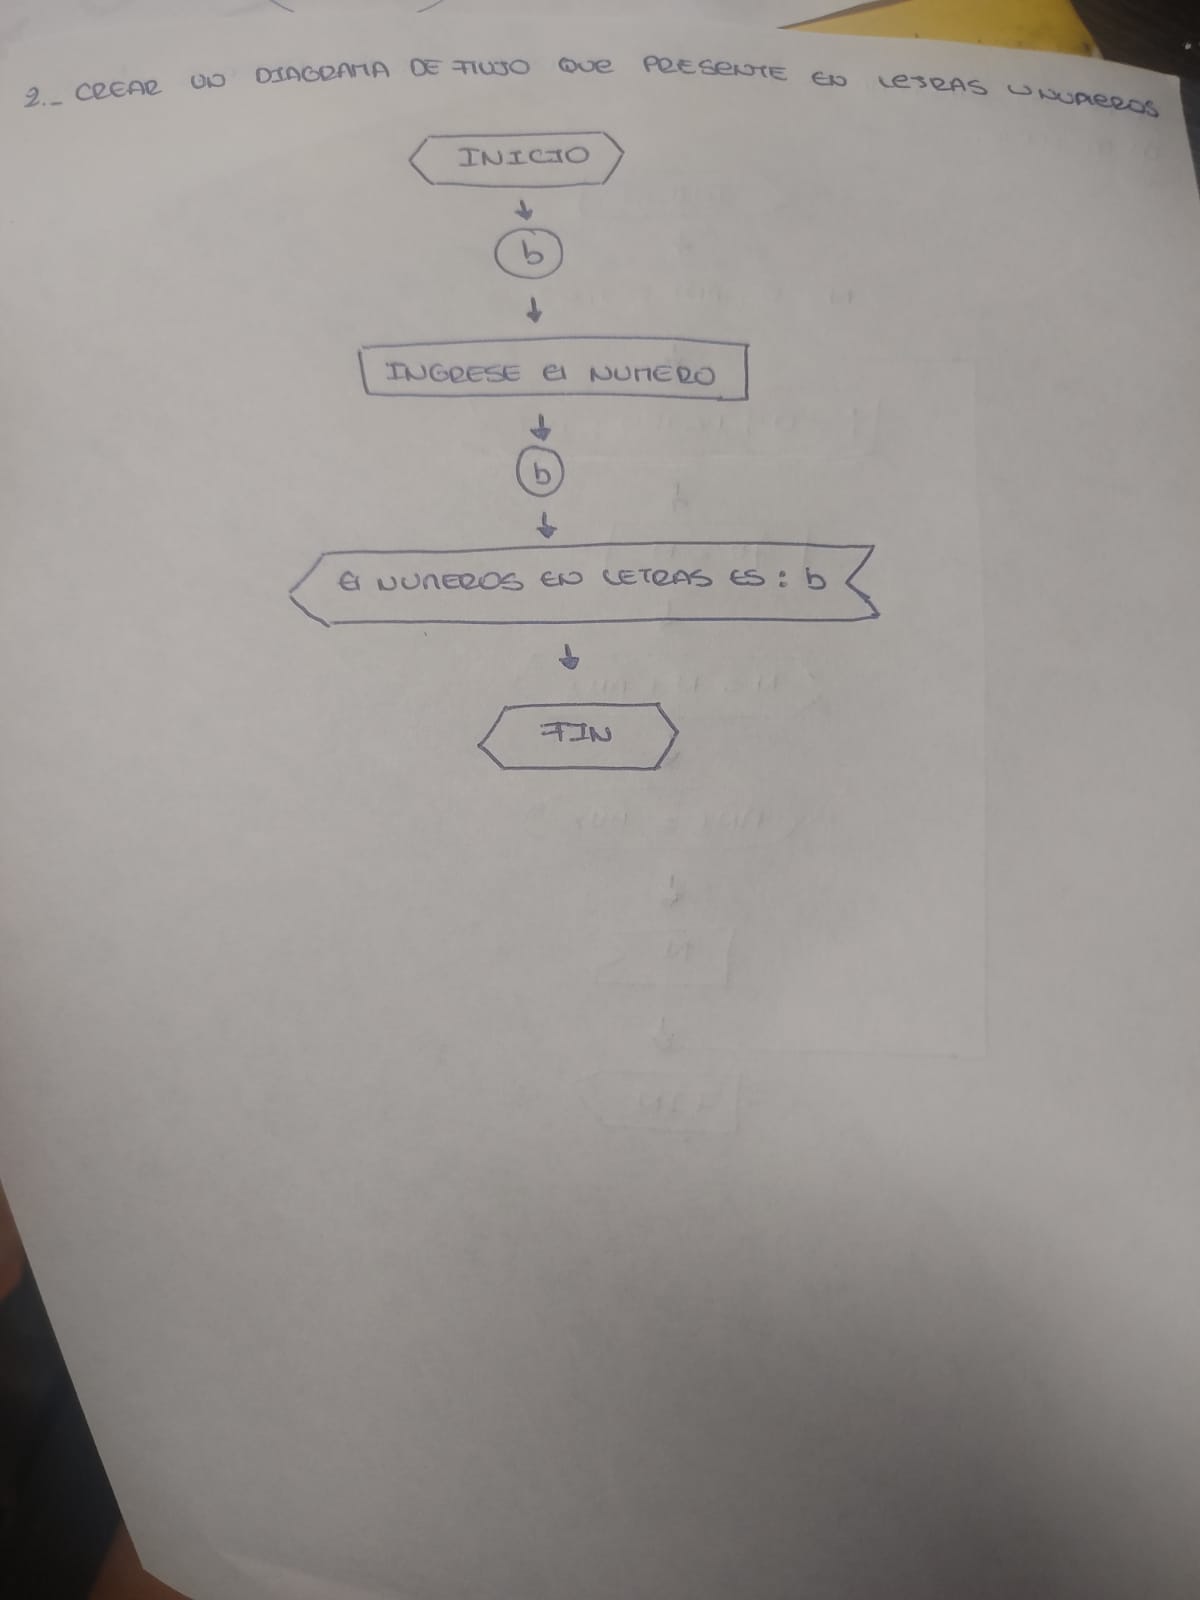 2._ CREAR UN DIAGRAMA DE FLUJO QUE PRESENTE EN LETRAS U NUMEROS
INICIO
b
INGRESE El NUMERO
b
El NUMEROS EN LETRAS ES : b
FIN